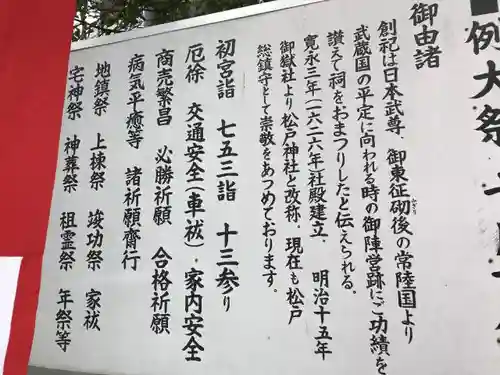 例大祭
御由諸
創祀は日本武尊、御東征砌後の常陸国より
みぎり
武蔵国の平定に向われる時の御陣営跡にご功績を
讃えて祠をおまつりしたと伝えられる。
寛永三年(一六二六年社殿建立、明治十五年
御嶽社より松戸神社と改称、現在も松戸
総鎮守として崇敬をあつめております。
初宮詣 七五三詣 十三参り
厄除 交通安全(車祓)・家内安全
商売繁昌 必勝祈願 合格祈願
病気平癒等 諸祈願齋行
地鎮祭 上棟祭 竣功祭 家祓
宅神祭 神葬祭 祖霊祭 年祭等